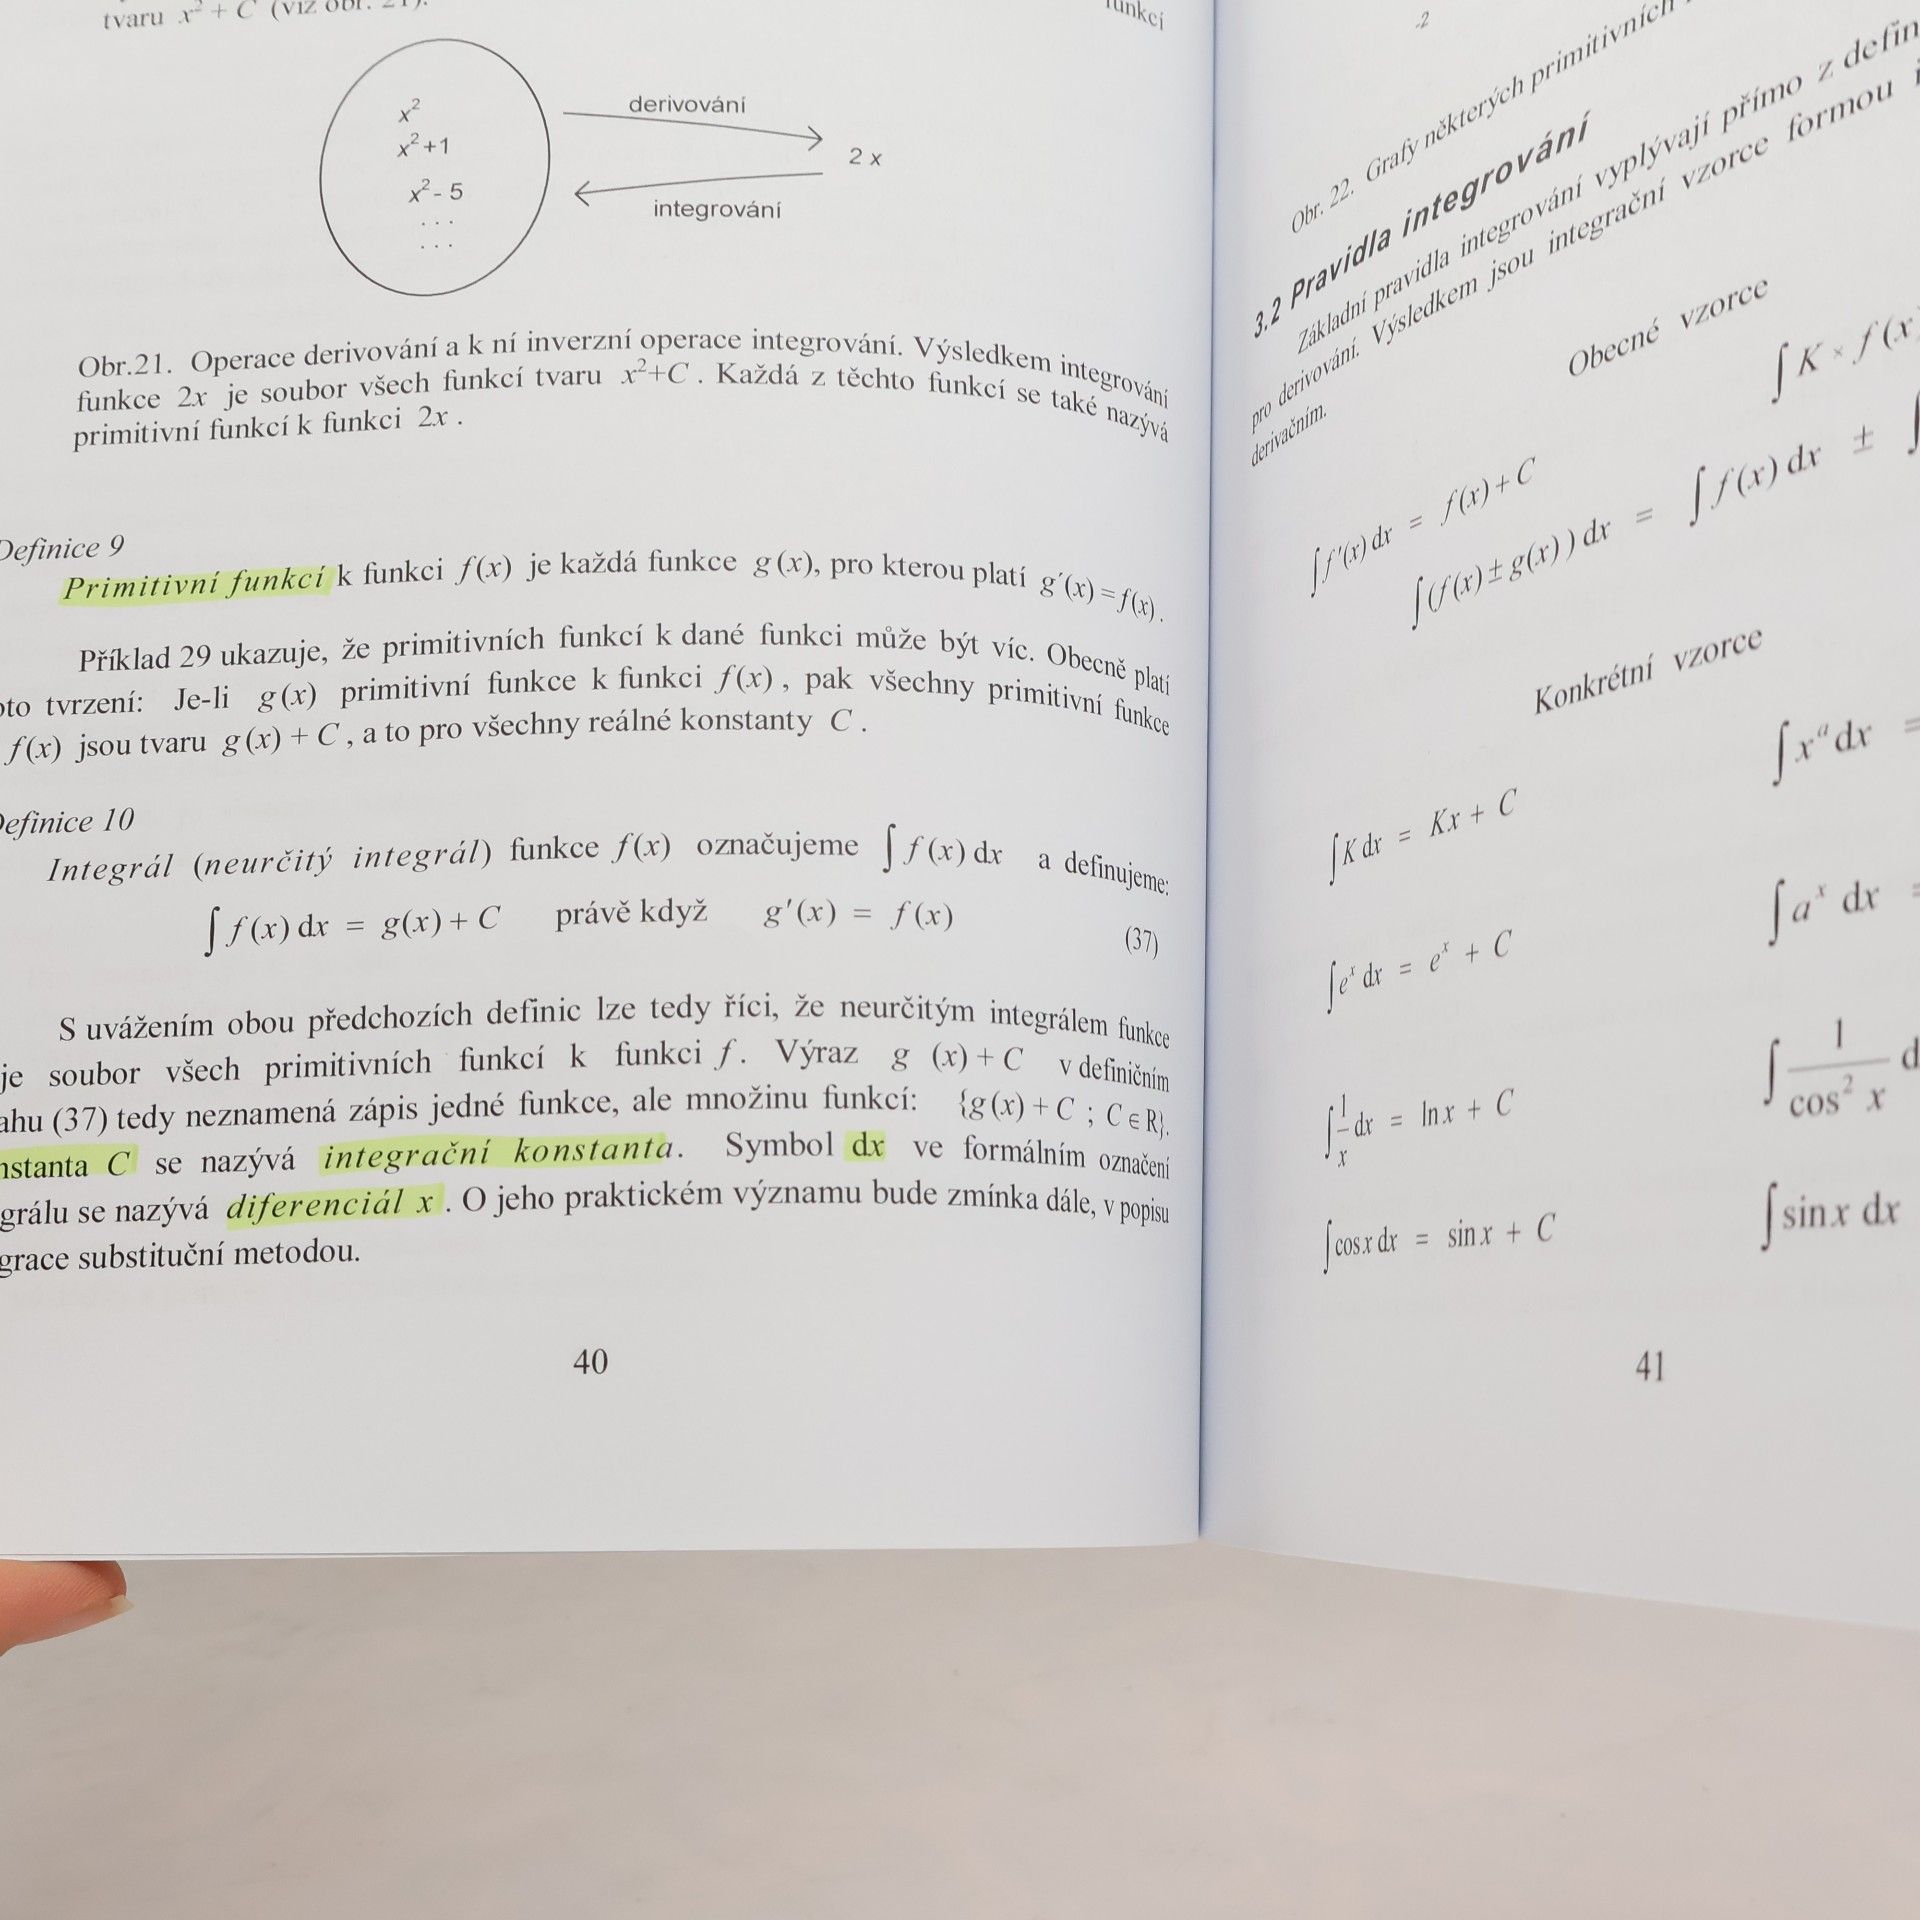 tvaru x² + C (viz obr. 21).
funkcí
x²
x²+1
x²- 5
. . .
. . .
derivování
2 x
integrování
Obr.21. Operace derivování a k ní inverzní operace integrování. Výsledkem integrování
funkce 2x je soubor všech funkcí tvaru x²+C . Každá z těchto funkcí se také nazývá
primitivní funkcí k funkci 2x .
Definice 9
Primitivní funkcí k funkci f(x) je každá funkce g(x), pro kterou platí g´(x) = f(x).
Příklad 29 ukazuje, že primitivních funkcí k dané funkci může být víc. Obecně platí
oto tvrzení: Je-li g(x) primitivní funkce k funkci f(x), pak všechny primitivní funkce
f(x) jsou tvaru g(x) + C , a to pro všechny reálné konstanty C .
Definice 10
Integrál (neurčitý integrál) funkce f(x) označujeme ∫ f(x) dx a definujeme:
∫ f(x) dx = g(x) + C právě když g'(x) = f(x) (37)
S uvážením obou předchozích definic lze tedy říci, že neurčitým integrálem funkce
je soubor všech primitivních funkcí k funkci f. Výraz g (x) + C v definičním
ahu (37) tedy neznamená zápis jedné funkce, ale množinu funkcí: {g(x) + C ; C∈R}.
nstanta C se nazývá integrační konstanta. Symbol dx ve formálním označení
grálu se nazývá diferenciál x . O jeho praktickém významu bude zmínka dále, v popisu
grace substituční metodou.
40
-2
Obr. 22. Grafy některých primitivních
3.2 Pravidla integrování
Základní pravidla integrování vyplývají přímo z defin
pro derivování. Výsledkem jsou integrační vzorce formou i
derivačním.
Obecné vzorce
∫ K × f(x)
∫ f'(x) dx = f(x) + C
∫ (f(x) ± g(x) ) dx = ∫ f(x) dx ± ∫
Konkrétní vzorce
∫ xᵃ dx =
∫ K dx = Kx + C
∫ aˣ dx =
∫ eˣ dx = eˣ + C
∫ 1/cos² x d
∫ 1/x dx = ln x + C
∫ sin x dx
∫ cos x dx = sin x + C
41